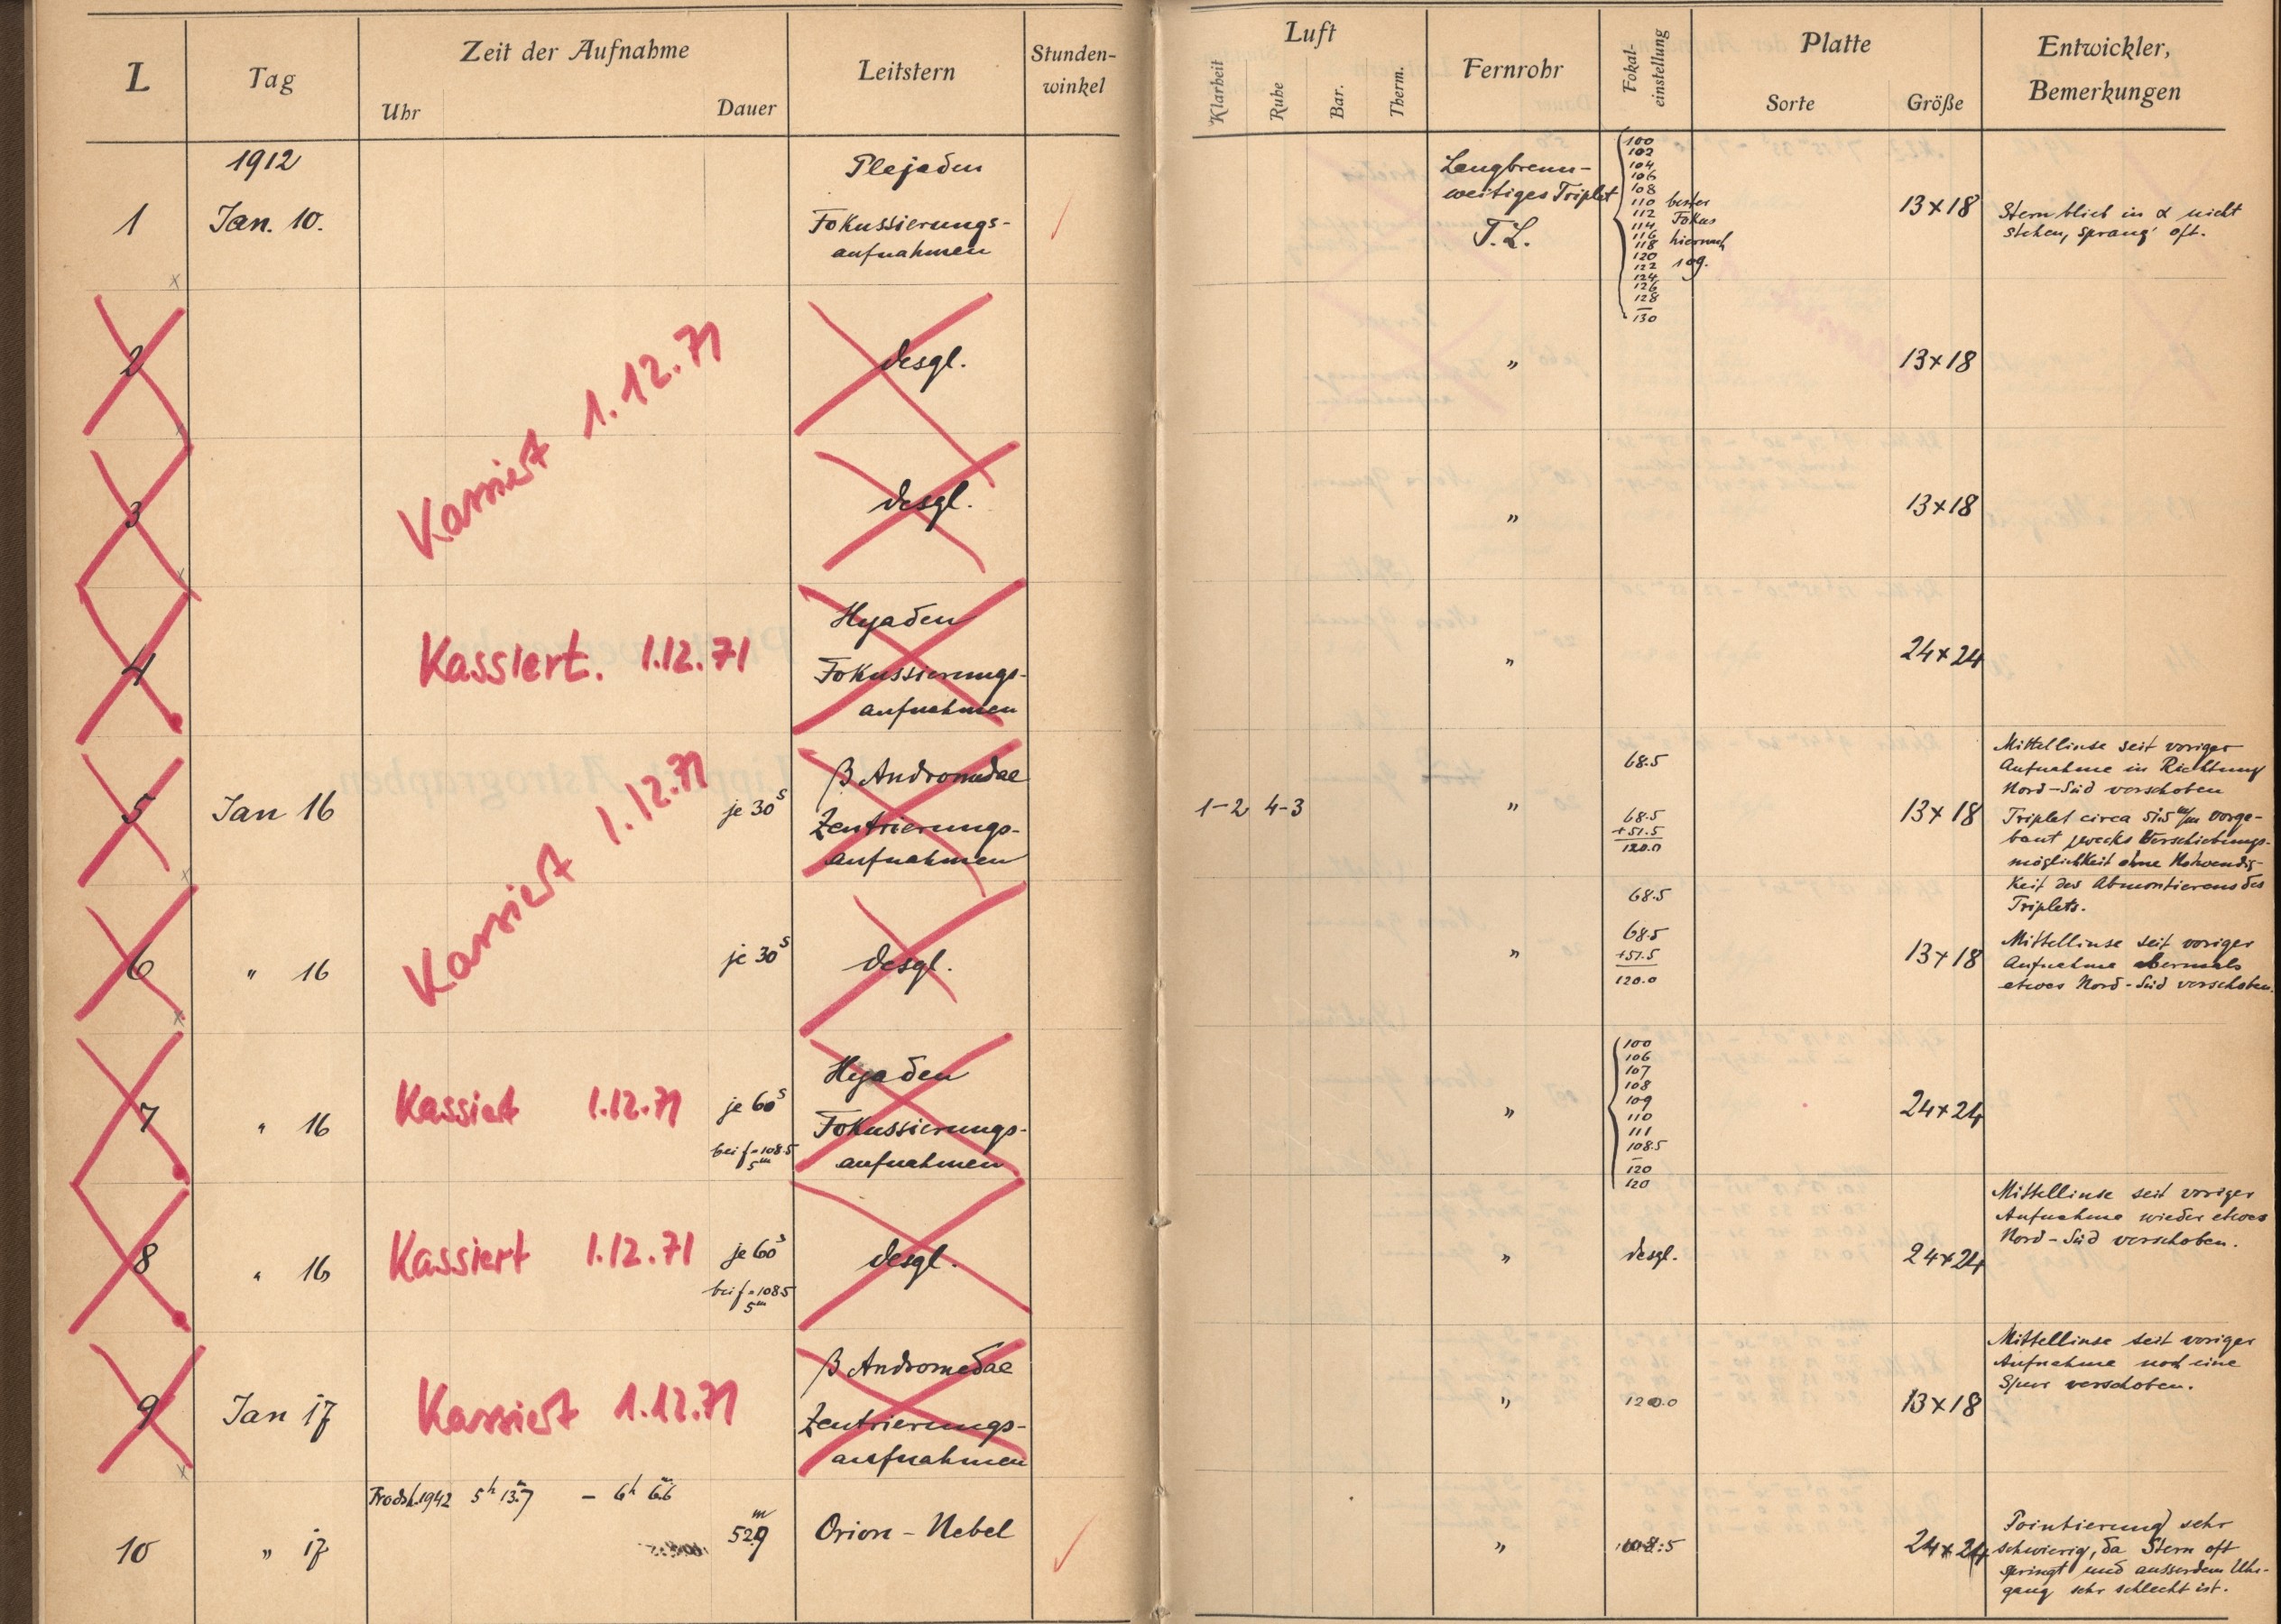 L
Tag
Zeit der Aufnahme
Uhr
Dauer
Leitstern
Stunden-
winkel
Luft
Klarheit
Ruhe
Bar.
Therm.
Fernrohr
Fokal-
einstellung
Platte
Sorte
Größe
Entwickler,
Bemerkungen
1912
1
Jan. 10.
Plejaden
Fokussierungs-
aufnahmen
Langbrenn-
weitiges Triplet
T.L.
100
102
104
106
108
110 bester
112 Fokus
114
116 hiernach
118
120 109.
122
124
126
128
130
13×18
Stern blieb in α nicht
stehen, sprang oft.
2
Kassiert 1.12.71
desgl.
"
13×18
3
desgl.
"
13×18
4
Kassiert. 1.12.71
Hyaden
Fokussierungs-
aufnahmen
"
24×24
5
Jan 16
Kassiert 1.12.71
je 30s
β Andromedae
Zentrierungs-
aufnahmen
1-2 4-3
"
68.5
68.5
+51.5
120.0
13×18
Mittellinse seit voriger
Aufnahme in Richtung
Nord-Süd verschoben
Triplet circa 51.5 m/m vorge-
baut zwecks Verschiebungs-
möglichkeit ohne Notwendig-
keit des Abmontierens des
Triplets.
6
" 16
je 30s
desgl.
"
68.5
68.5
+51.5
120.0
13×18
Mittellinse seit voriger
Aufnahme abermals
etwas Nord-Süd verschoben.
7
" 16
Kassiert 1.12.71
je 60s
bei f=108.5
5m
Hyaden
Fokussierungs-
aufnahmen
"
100
106
107
108
109
110
111
108.5
120
120
24×24
8
" 16
Kassiert 1.12.71
je 60s
bei f=108.5
5m
desgl.
"
desgl.
24×24
Mittellinse seit voriger
Aufnahme wieder etwas
Nord-Süd verschoben.
9
Jan 17
Kassiert 1.12.71
β Andromedae
Zentrierungs-
aufnahmen
"
120.0
13×18
Mittellinse seit voriger
Aufnahme noch eine
Spur verschoben.
10
" 17
Frodsh.1942 5h 13.7m – 6h 6.6m
52.9m
Orion-Nebel
"
108.5
24×24
Pointierung sehr
schwierig, da Stern oft
springt und ausserdem Uhr-
gang sehr schlecht ist.